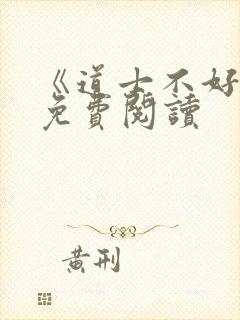 《道士不好
免費閱讀
黃刑